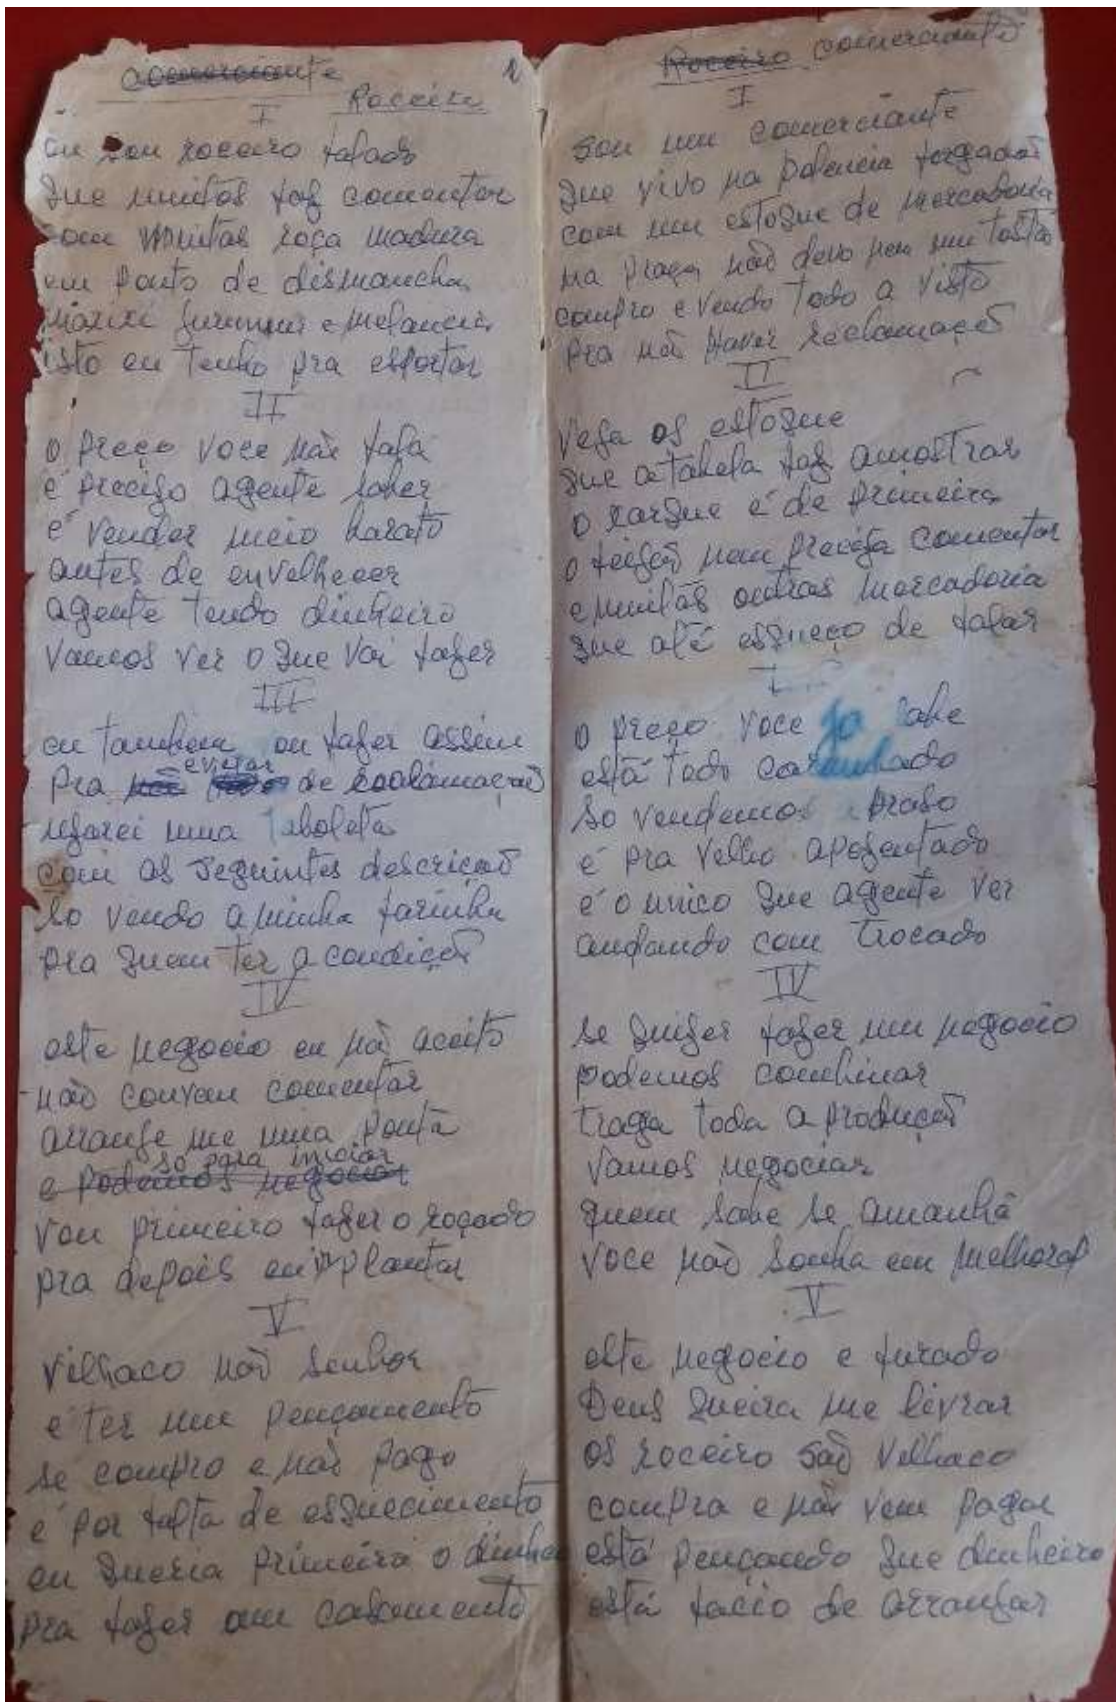 comerciante 1
Roceiro
I
eu sou roceiro falado
que muitos faz comentar
com muitas roça madura
em ponto de dismancha
maxixi jurumum e melancia
isto eu tenho pra esportar
II
o preço voce não falá
é preciso agente saber
é vender meio barato
antes de envelhecer
agente tendo dinheiro
vamos ver o que vai fazer
III
eu tambem ou fazer assim
evitar
pra não de reclamação
usarei uma taboleta
com as seguintes descrição
so vendo a minha farinha
pra quem ter a condição
IV
este negocio eu não aceito
não convem comentar
arranje me uma ponta
so para iniciar
e podemos negociar
vou primeiro fazer o roçado
pra depois eu ir plantar
V
vilhaco não senhor
é ter um pençamento
se compro e não pago
é por falta de esquecimento
eu queria primeira o dinhei
pra fazer um casamento
Roceiro comerciante
I
sou um comerciante
que vivo na potencia
com um estoque de mercadoria
na praça não devo nem um tostão
compro e vendo todo a visto
pra não haver reclamação
II
veja os estoque
que a tabela faz amostrar
o xarque é de primeira
o feijão nem preceja comentar
e muitas outras mercadoria
que até esqueço de falar
I
o preço voce ja sabe
está todo carimbado
so vendemos a praso
é pra velho aposentado
é o unico que agente ver
andando com trocado
IV
se quizer fazer um negocio
podemos combinar
traga toda a produção
vamos negociar
quem sabe se amanhã
voce não sonha em melhorar
V
este negocio e furado
Deus queira me livrar
os roceiro são velhaco
compra e não vem pagar
está pençando que dinheiro
está facio de arranjar